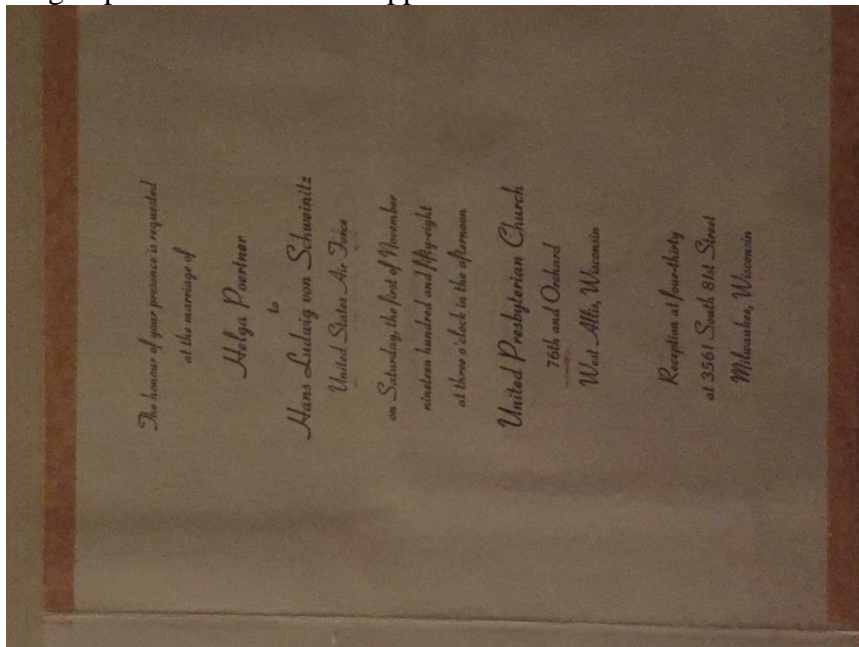 The honour of your presence is requested
at the marriage of
Helga Poertner
to
Hans Ludwig von Schweinitz
United States Air Force
on Saturday, the first of November
nineteen hundred and fifty-eight
at three o'clock in the afternoon
United Presbyterian Church
76th and Orchard
West Allis, Wisconsin
Reception at four-thirty
at 3561 South 81st Street
Milwaukee, Wisconsin